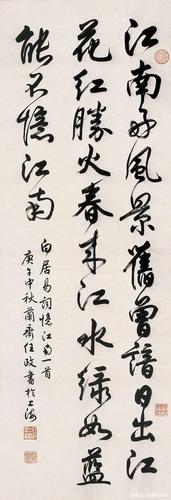 江南好風景舊曾諳日出江
花紅勝火春來江水綠如藍
能不憶江南
白居易詞憶江南一首
庚午中秋蘭齋任政書於上海